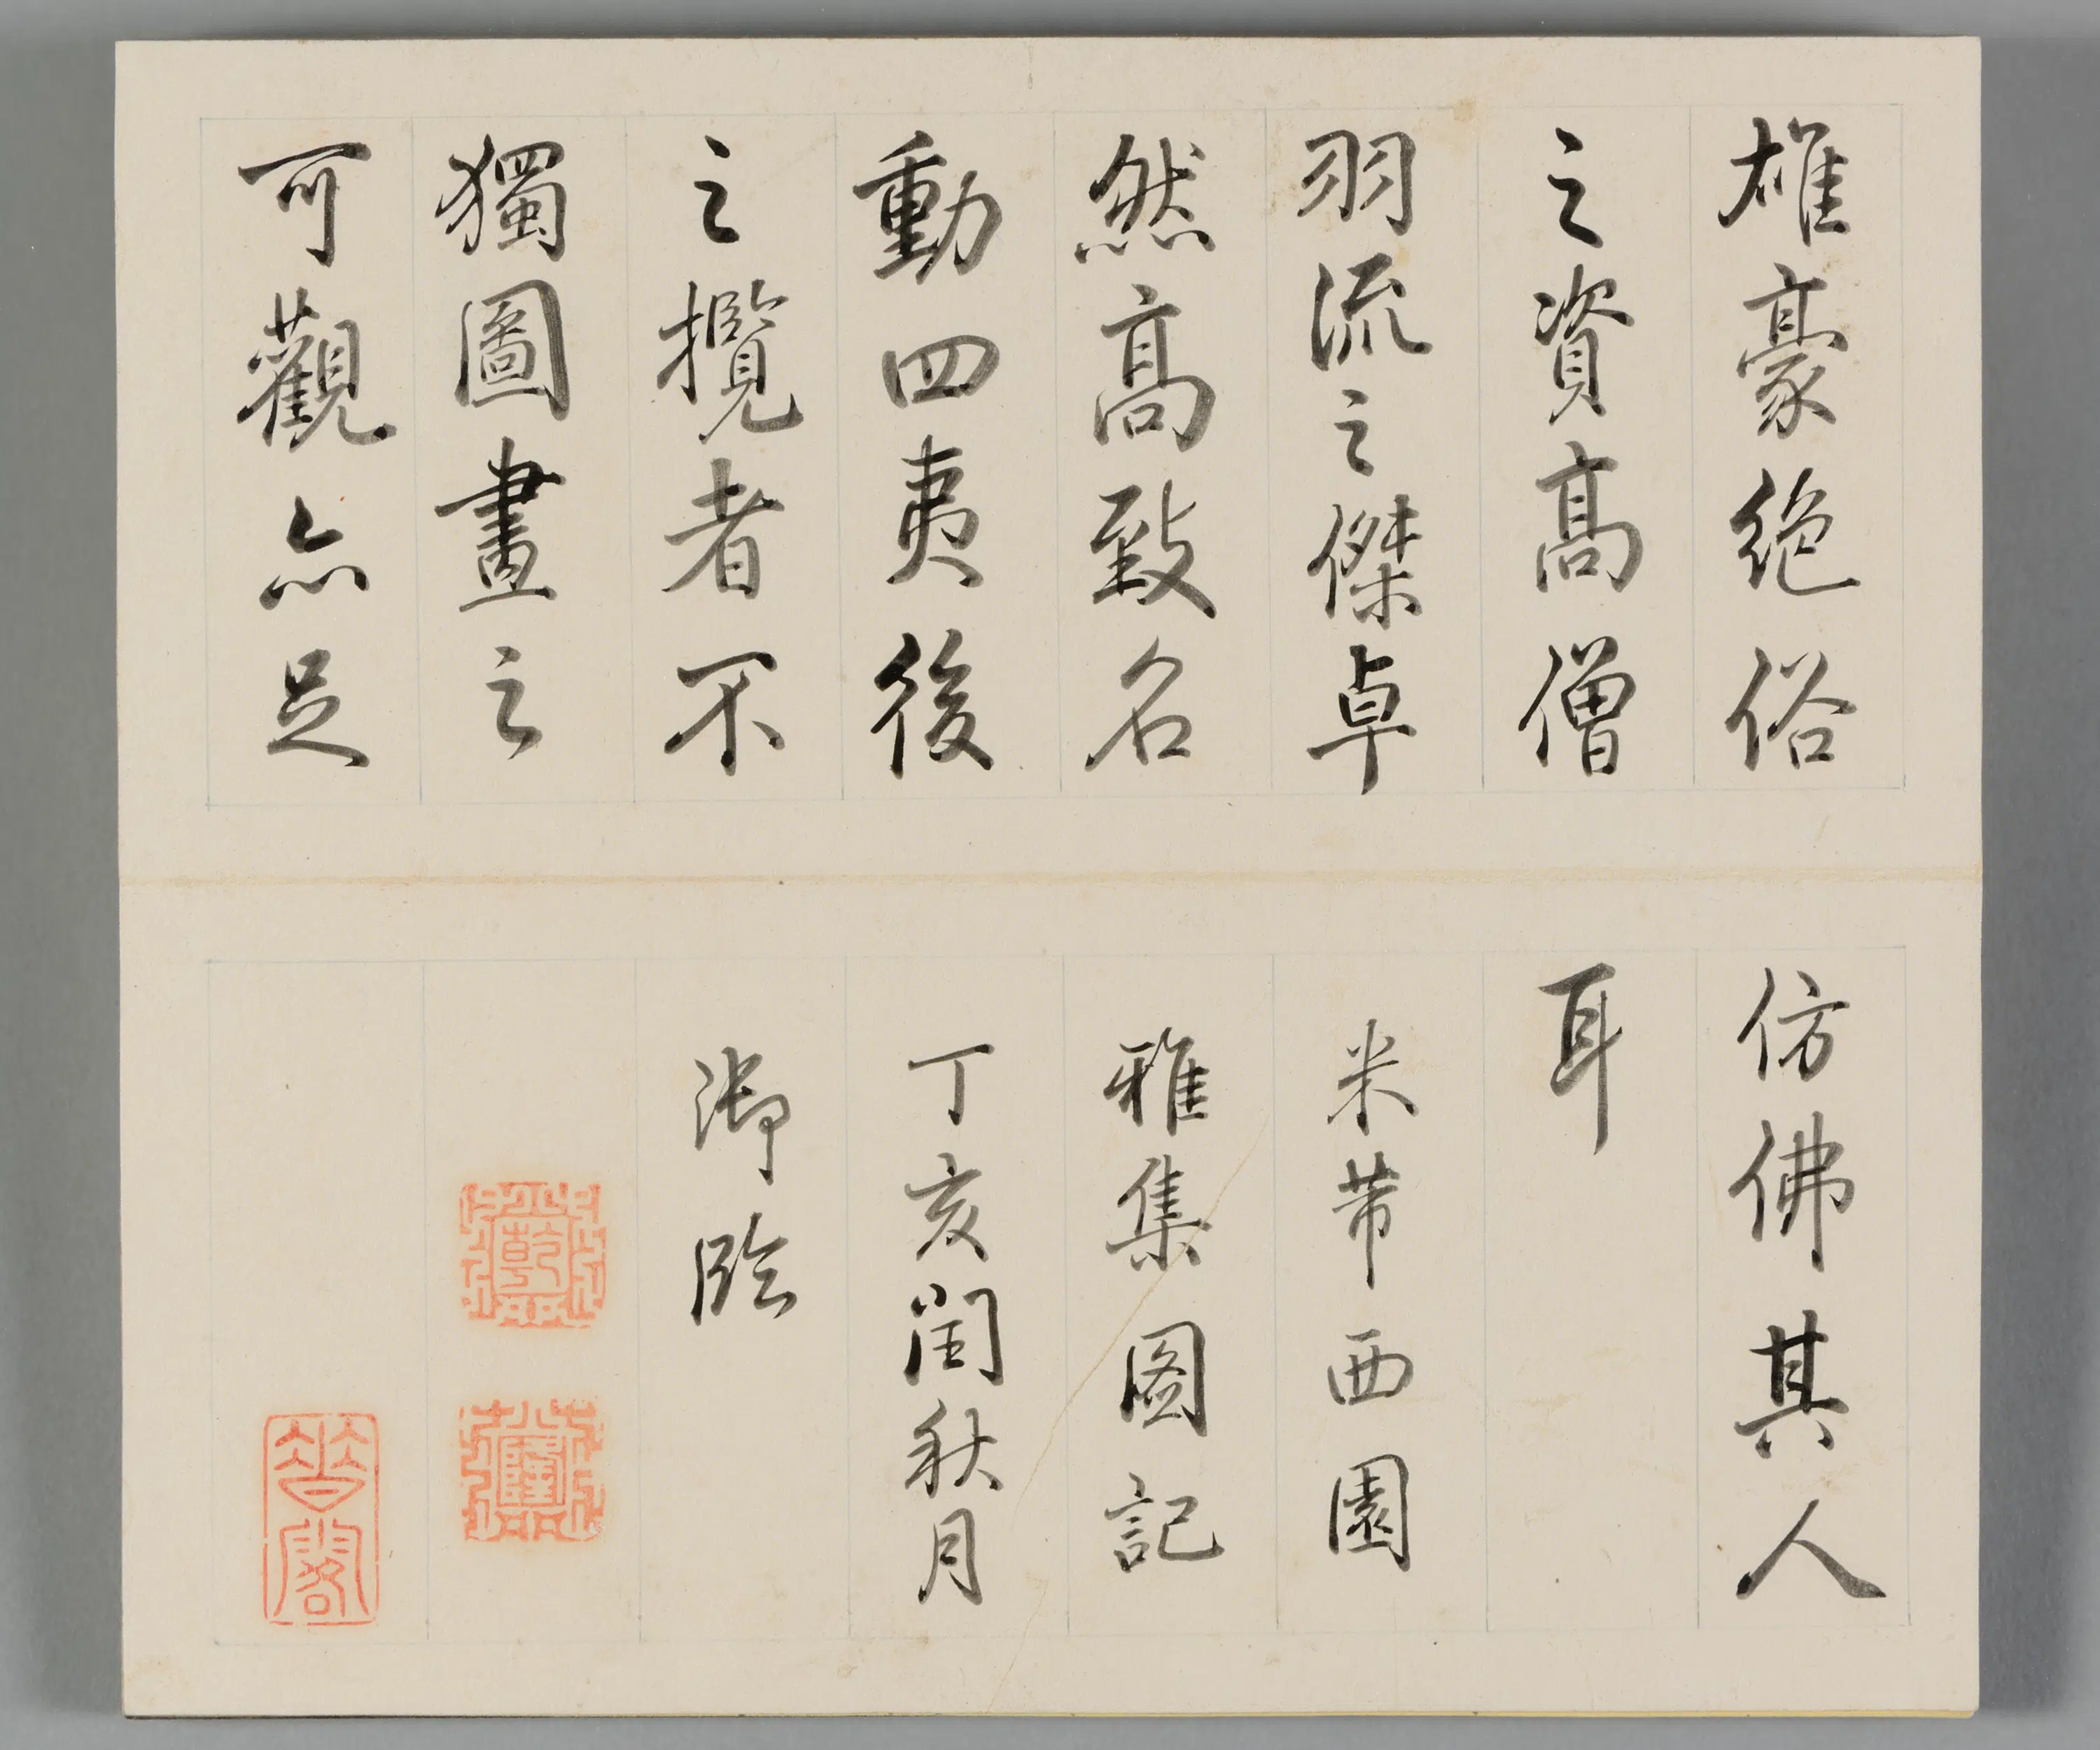 雄豪絶俗
之資高僧
羽流之傑卓
然高致名
動四夷後
之攬者不
獨圖畫之
可觀亦足
仿佛其人
耳
米芾西園
雅集圖記
丁亥閏秋月
御臨
乾
隆
晉
閣